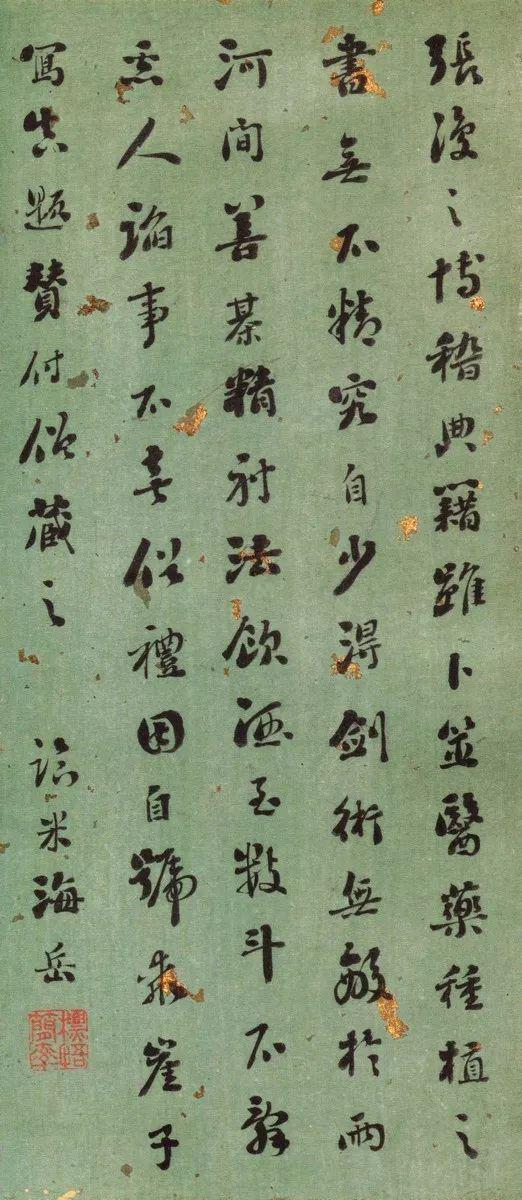 張復之博稽典籍雖卜筮醫藥種植之
書無不精究自少得劍術無敵於兩
河間善棊精射法飲酒至數斗不辭
惡人諂事不喜俗禮因自號乖崖子
寫真題贊付僧藏之
臨米海岳